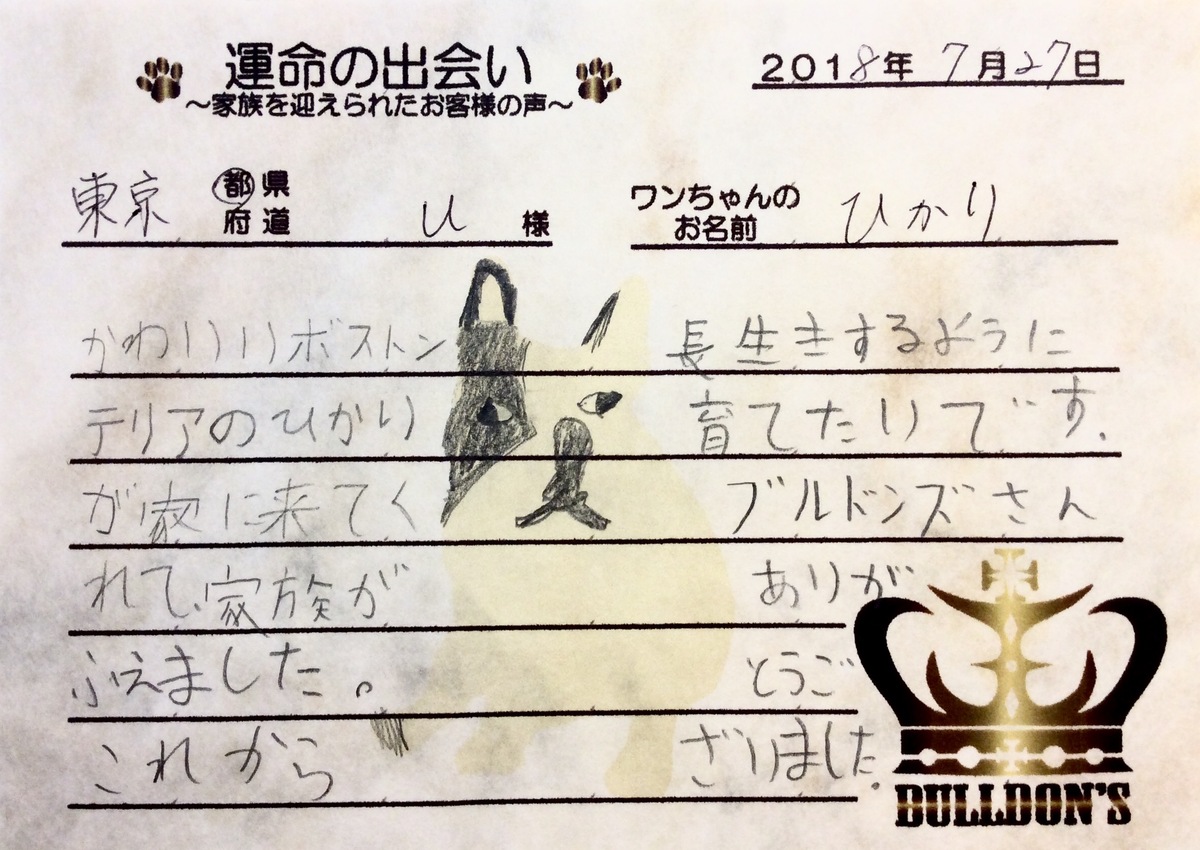 運命の出会い
～家族を迎えられたお客様の声～
2018年 7月27日
東京 都県府道 U 様
ワンちゃんのお名前 ひかり
かわいいボストン
テリアのひかり
が家に来てく
れて、家族が
ふえました。
これから
長生きするように
育てたいです。
ブルドンズさん
ありが
とうご
ざいました。
BULLDON'S